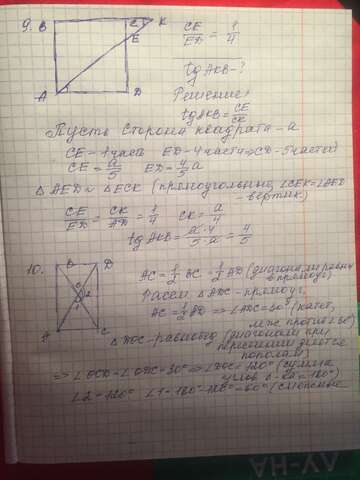 9. B C K CE/ED = 1/4
E
A D tg AKB - ?
Решение:
tg AKB = CE/CK
Пусть сторона квадрата - a
CE - 1 часть ED - 4 части => CD - 5 частей
CE = a/5 ED = 4/5 a
△AED ~ △ECK (прямоугольные, ∠CEK = ∠AED
- вертик)
CE/ED = CK/AD = 1/4 CK = a/4
tg AKB = a·4/5·a = 4/5
10. B D AC = 1/2 BC = 1/2 AD (диагонали равны
в прямоуг)
2 Рассм △ADC - прямоуг,
A C AC = 1/2 AD => ∠ADC = 30° (катет,
леж против 30°)
△ДОС - равнобед (диагонали при
пересечении делятся
пополам)
=> ∠OCD = ∠ODC = 30° => ∠DOC = 120° (сумма
углов = 180°)
∠2 = 120° ∠1 = 180° - 120° = 60° (смежные
ЛУ-НА